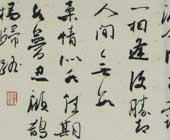 一相逢便勝却
人間無數
柔情似水佳期
如夢忍顧鵲
橋歸路